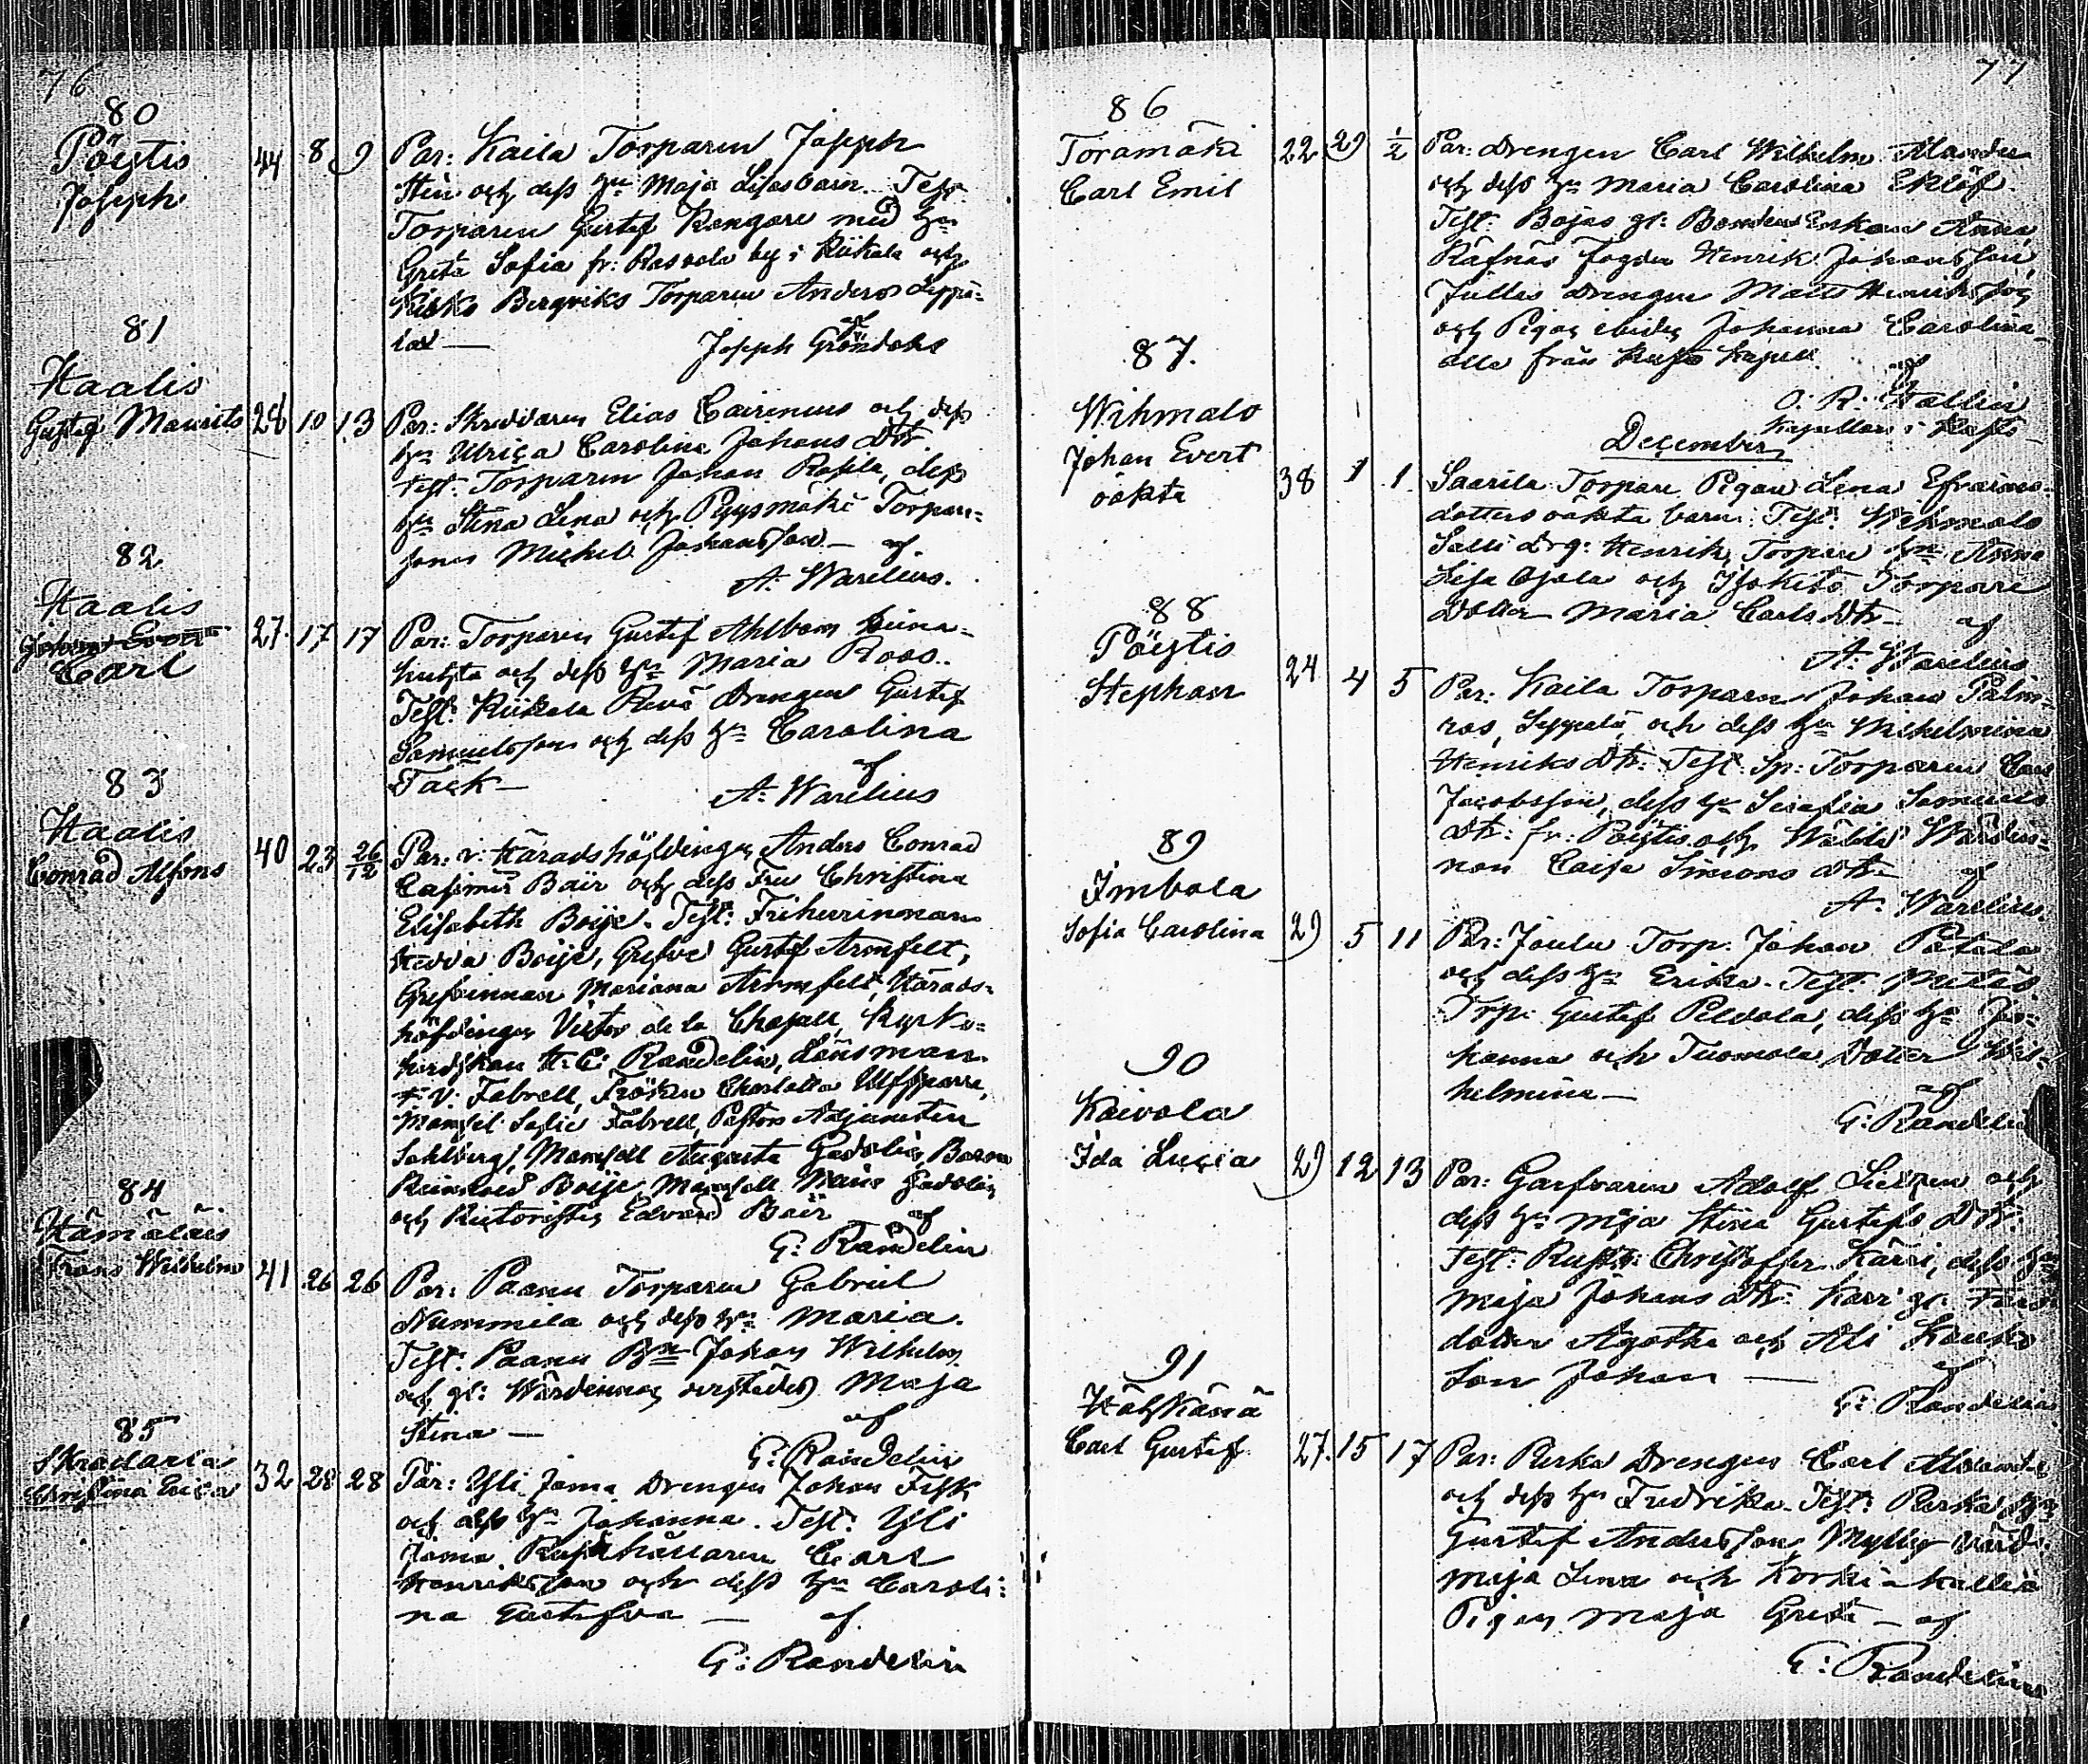 76
80
Pöytis
Joseph
44 8 9
Par: Kaila Torparen Joseph
och dess hu Maja Lisas barn. Test:
Torparen Gustef Kangare med hu
Greta Sofia fr: by i Kiikala och
Kisko Bergviks Torparen Anders Leppä-
lax — af
Joseph Gröndahl
81
Haalis
Gustaf Maurits
28 10 13
Par: Skreddaren Elias Cairenius och dess
hu Ulrica Carolina Johans Dtr
Test: Torparen Johan Rosila, dess
hu Stina Lena och Pyysmäki Torpare-
sonen Michel Johansson — af
A: Warelius.
82
Haalis
Carl
27. 17 17
Par: Torparen Gustef Ahlbom
och dess hu Maria Roos.
Test: Kiikala Drengen Gustef
Samuelsson och dess hu Carolina
Tack — af
A: Warelius
83
Haalis
Conrad Alfons
40 23 26/12
Par: v: Häradshöfdingen Anders Conrad
Casimir Bäir och dess Fru Christina
Elisabeth Boije. Test: Friherrinnan
Hedda Boije, Grefve Gustaf Armfelt,
Grefvinnan Mariana Armfelt, Härads-
höfdingen Victor de la Chapelle, Kyrko-
herdskan H: C: Randelin, Länsman
F: V: Fabrell, Fröken Charlotta Ulfsparre,
Mamsel Fabrell, Pastors Adjuncten
Sahlberg, Mamsell Augusta Gadolin, Baron
Reinhold Boije, Mamsell Marie Gadolin
och Edvard Bäir af
G: Randelin
84
Hämäläis
Frans Wilhelm
41 26 26
Par: Paanu Torparen Gabriel
Nummila och dess hu Maria.
Test: Paanu Bn Johan Wilhelm
och gl: Wärdinnan Maja
Stina — af
G: Randelin
85
Skradarla
Christina Erica
32 28 28
Par: Yli Jama Drengen Johan Fisk
och dess hu Johanna. Test: Yli
Jama Rusthållaren Carl
Henriksson och dess hu Caroli-
na Gustafva — af
G: Randelin
77
86
Toramäki
Carl Emil
22 29 1/2
Par: Drengen Carl Wilhelm
och dess hu Maria Carolina Eklöf.
Test: Bojas gl: Bonden Enkan Anna,
Räfnäs Fogden Henrik Johansson,
Jullas Drengen Matts Henriksson
och Pigan Johanna Carolina
alla från Kapell. af
O: R: Wallin
Kapellan i
December
87.
Wihmalo
Johan Evert
oäkta
38 1 1.
Saarila Torpare Pigan Lena Efraims-
dotters oäkta barn. Test: Wihmalo
Salli Drg: Henrik, Torpare hn Anna
Lisa Ojala och Torpare
Dotter Maria Carls Dtr — af
A: Warelius
88
Pöytis
Stephan
24 4 5
Par: Kaila Torparen Johan Palm-
ros, Seppälä, och dess hu Wilhelmina
Henriks Dtr: Test: Sp: Torparen Carl
Jacobsson, dess hu Serafia Samuels
Dtr: fr: Pöytis och Wärdin-
nan Caisa Simons Dtr — af
A: Warelius.
89
Imbola
Sofia Carolina
29 5 11
Par: Joulu Torp: Johan Patala
och dess hu Erika. Test:
Trp: Gustaf Peldola, dess hu Jo-
hanna och Tuomola Dotter Wil-
helmina — af
G: Randelin
90
Koivola
Ida Lucia
29 12 13
Par: Garfvaren Adolf och
dess hu Maja Stina Gustafs Dtr:
Test: Rusth: Christoffer Kärri, dess hu
Maja Johans Dtr: Karri gl:
dotter Agatha och Ali
Son Johan — af
G: Randelin
91
Kähkänä
Carl Gustaf
27. 15 17
Par: Purka Drengen Carl
och dess hu Fredrika. Test: Purka
Gustaf Andersson, Mylly Wärd:
Maja Lena och Korkia-kallio
Pigan Maja Greta — af
G: Randelin